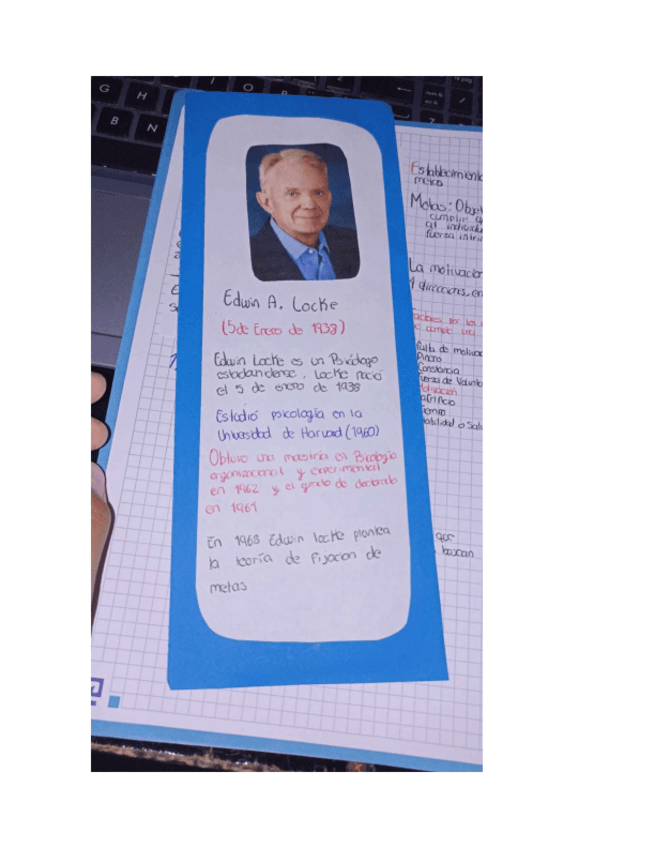 Edwin A. Locke
(5 de Enero de 1938)
Edwin Locke es un Psicólogo
estadounidense. Locke nació
el 5 de enero de 1938
Estudió psicología en la
Universidad de Harvard (1960)
Obtuvo una maestría en Psicología
organizacional y experimental
en 1962 y el grado de doctorado
en 1964
En 1968 Edwin locke plantea
la teoría de Fijacion de
metas
Establecimiento
metas
Metas: Obje
cumplir
al individu
fuerza
La motivacion
direcciones, en
Falta de motivac
Dinero
Constancia
Fuerza de Volunt
Motivación
Tiempo
que
buscan
G
H
B
N
O